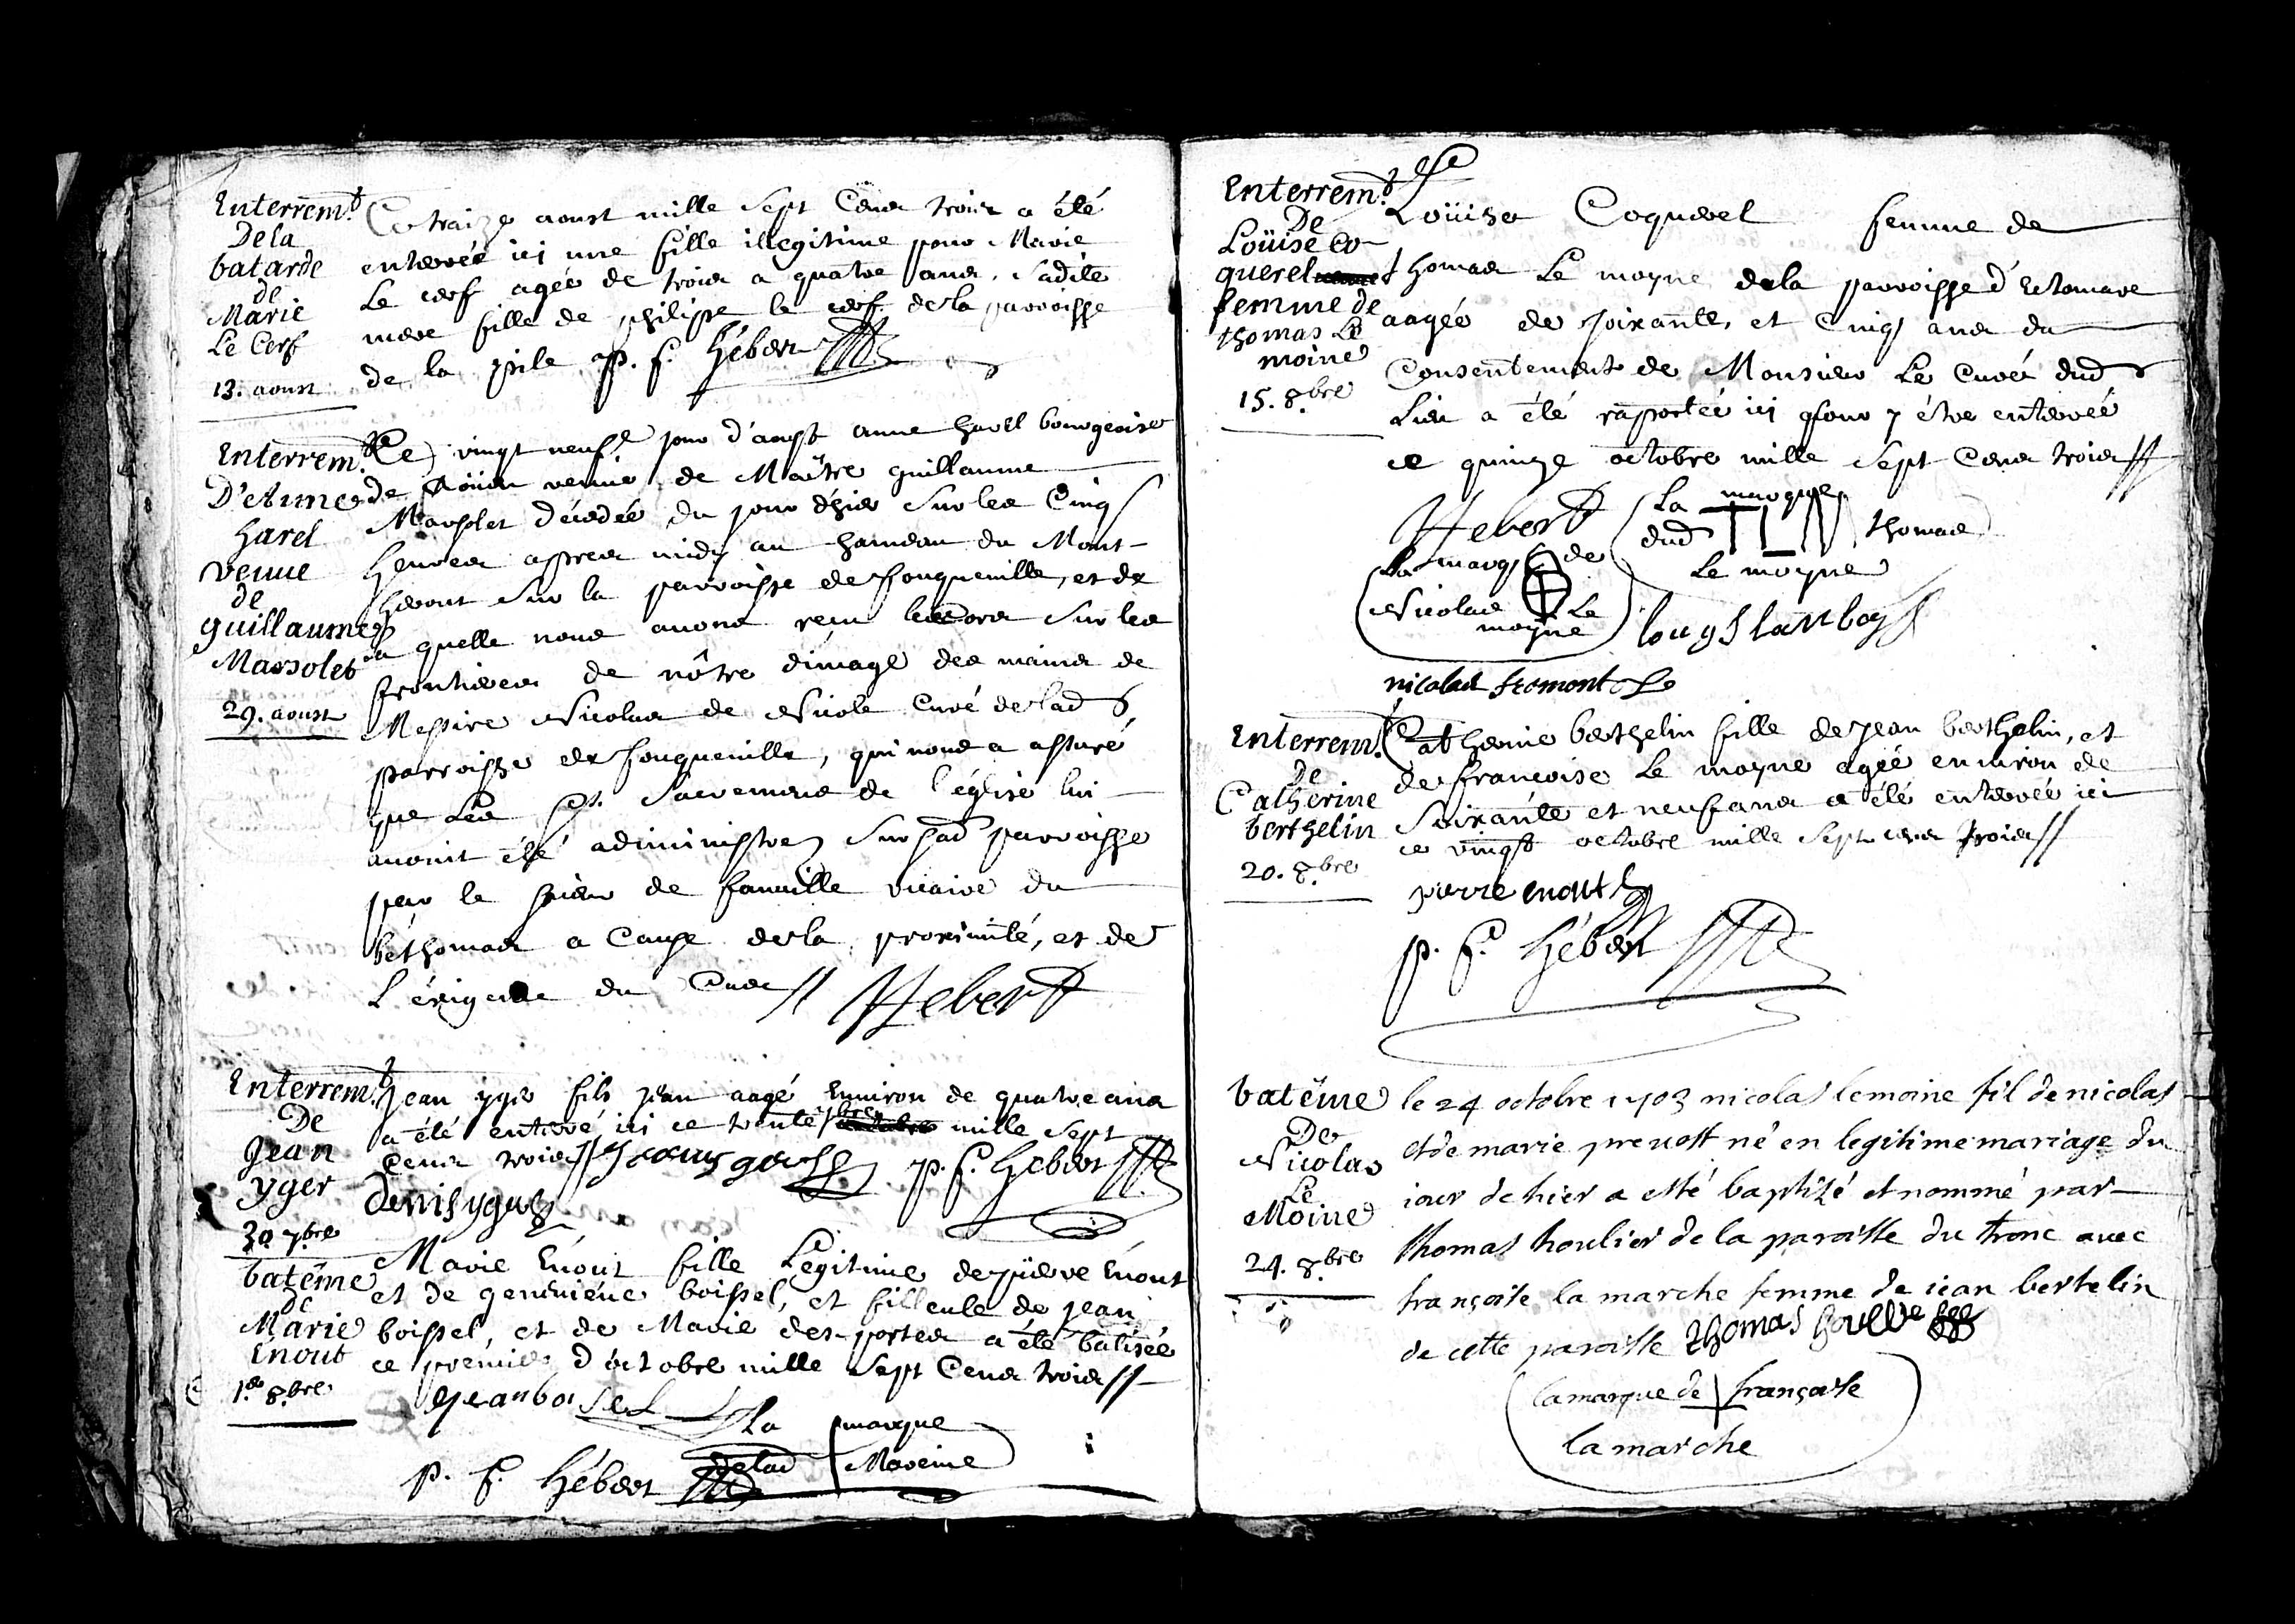 Enterremt
De la
batarde
de
Marie
Le Cerf
13. aoust
Ce traize aoust mille sept Cens trois a été
enterrée ici une fille illegitime pour Marie
Le cerf agée de trois a quatre ans, sadite
mere fille de philippe le cerf de la parroisse
de la pile P. f. Hébert
Enterremt
D'Anne
harel
veuue
de
guillaume
Marsolet
29. aoust
Le vingt neufe jour d'aoust anne harel bourgeoise
de Roüen veuue de Maître guillaume
Marsolet décedée du jour d'hier sur les Cinq
heures apres midy au hameau du Mont-
heront sur la parroisse de fouqueuille, et de
la quelle nous auons reçu le corps sur les
frontieres de nôtre dimage des mains de
Messire Nicolas de Nicole Curé de lad
parroisse de fouqueuille, qui nous a assuré
que Les Sts. Sacremens de l'église lui
auoint été administrez sur sad parroisse
par le sieur de famille vicaire du
béthomas a Cause de la proximité, et de
L'exigence du Cas // Hebert
Enterremt
De
Jean
yger
30. 7bre
Jean yger fils jean aagé Enuiron de quatre ans
a été enterré ici ce trente 7bre mille sept
Cens trois //
P. f. Hebert
denis yger
batême
de
Marie
Enout
1er 8bre
Marie Enout fille Legitime de pierre Enout
et de geneuiéue boissel, et filleule de jean
boissel, et de Marie des-portes a été batisée
ce premier d'octobre mille sept Cens trois //
jean boisel
La marque
de lad Mareine
P. f. Hébert
Enterremt
De
Loüise Co-
querel
femme de
thomas Le
moine
15. 8bre
Loüise Coquerel femme de
thomas Le moyne de la parroisse d'Ectomare
aagée de soixante, et Cinq ans du
Consentement de Monsieur Le Curé dud
Lieu a été raportée ici pour y étre enterrée
ce quinze octobre mille sept Cens trois //
Hebert
La marque
dud thomas
Le moyne
La marq de
Nicolas Le
moyne
nicolas fromont
Enterremt
De
Catherine
berthelin
20. 8bre
Catherine berthelin fille de jean berthelin, et
de françoise Le moyne agée enuiron de
soixante et neuf ans a été enterrée ici
ce vingt octobre mille sept cens trois //
pierre enout
P. f. Hébert
batême
De
Nicolas
Le
Moine
24. 8bre
le 24 octobre 1703 nicolas lemoine fil de nicolas
et de marie preuost né en legitime mariage du
iour de hier a esté baptizé et nommé par
thomas houlier de la paroisse du tronc auec
françoise la marche femme de iean bertelin
de cette paroisse thomas houllie
la marque de françoise
la marche